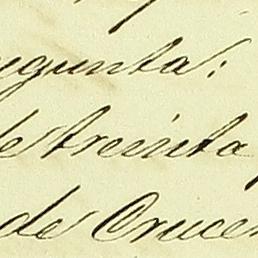 egunta:
de treinta
de Cruce